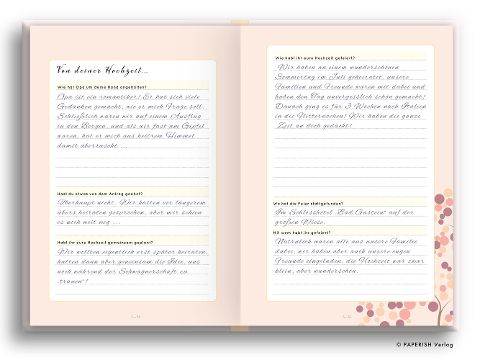 Von deiner Hochzeit...
Wie hat Opa um deine Hand angehalten?
Opa ist ein romantiker! Er hat sich viele
Gedanken gemacht, wie er mich Frage soll.
Schließlich waren wir auf einem Ausflug
in den Bergen, und als wir fast am Gipfel
waren, hat er mich aus heiterem Himmel
damit überrascht ...
Hast du etwas vor dem Antrag geahnt?
Überhaupt nicht. Wir hatten vor längerem
übers heiraten gesprochen, aber wir schien
es noch weit weg ...
Habt ihr eure Hochzeit gemeinsam geplant?
Wir wollten eigentlich erst später heiraten,
hatten dann aber gemeinsam die Idee, uns
noch während der Schwangerschaft zu
"trauen"!
Wie habt ihr eure Hochzeit gefeiert?
Wir haben an einem wunderschönen
Sommertag im Juli geheiratet, unsere
Familien und Freunde waren mit dabei und
haben den Tag unvergesslich schön gemacht!
Danach ging es für 3 Wochen nach Italien
in die Flitterwochen! Wir haben die ganze
Zeit an dich gedacht!
Wo hat die Feier stattgefunden?
Im Schlosshotel "Bad Gastein" auf der
großen Wiese.
Mit wem habt ihr gefeiert?
Natürlich waren alle aus unsere Familie
dabei, wir haben aber auch unsere engen
Freunde eingeladen, die Hochzeit war zwar
klein, aber wunderschön.
© PAPERISH Verlag